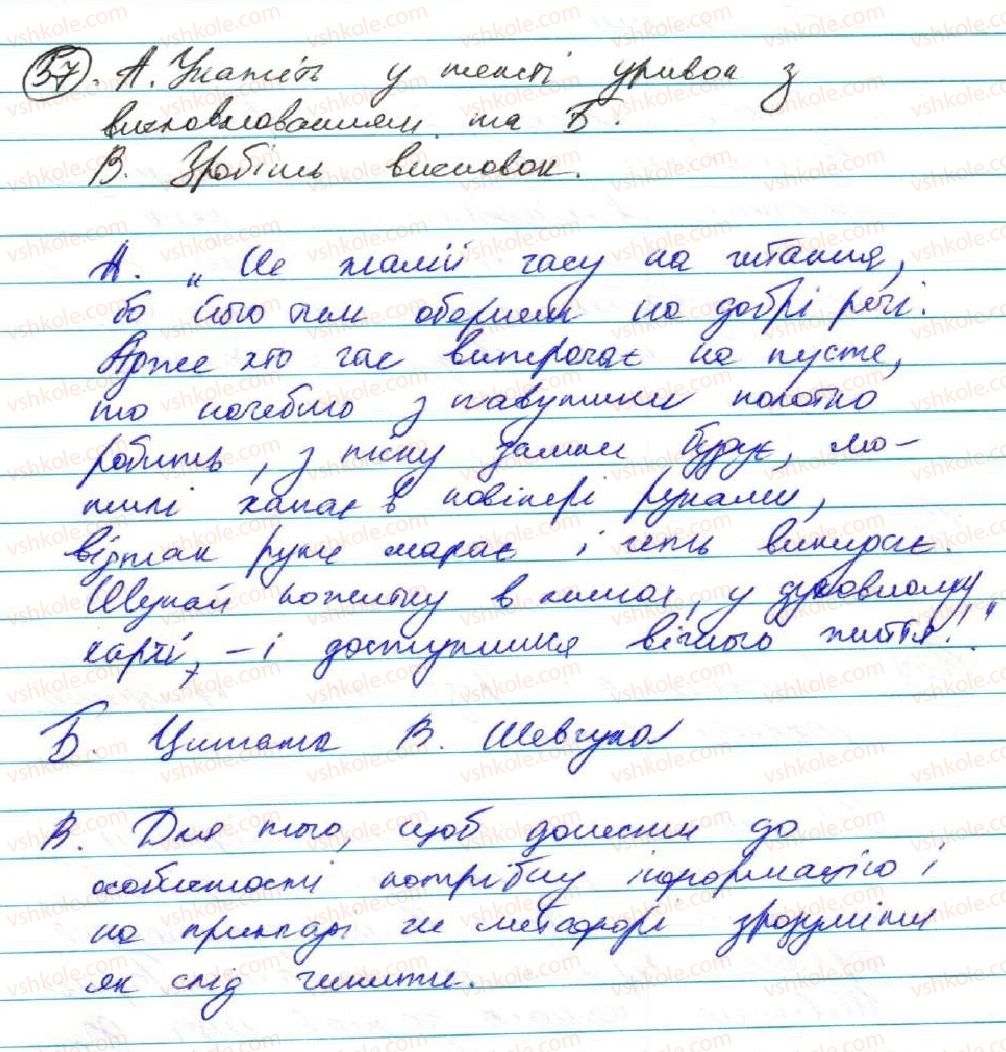 37. А. Укажіть у тексті уривок з
висновлюванням та Б.
В. Зробіть висновок.
А. „Не жалій часу на читання,
бо його тим обернеш на добрі речі.
Адже хто час витрачає на пусте,
то начебто з павутини полотно
робить, з піску замки будує, мо-
тилі хапає в повітрі руками,
відтак руки марає і геть викидає.
Шукай пожитку в книгах, у духовному
харчі, – і доступишся вічного життя!"
Б. Цитата В. Шевчука
В. Для того, щоб донести до
особистості потрібну інформацію і
на прикладі чи метафорі зрозуміти
як слід чинити.